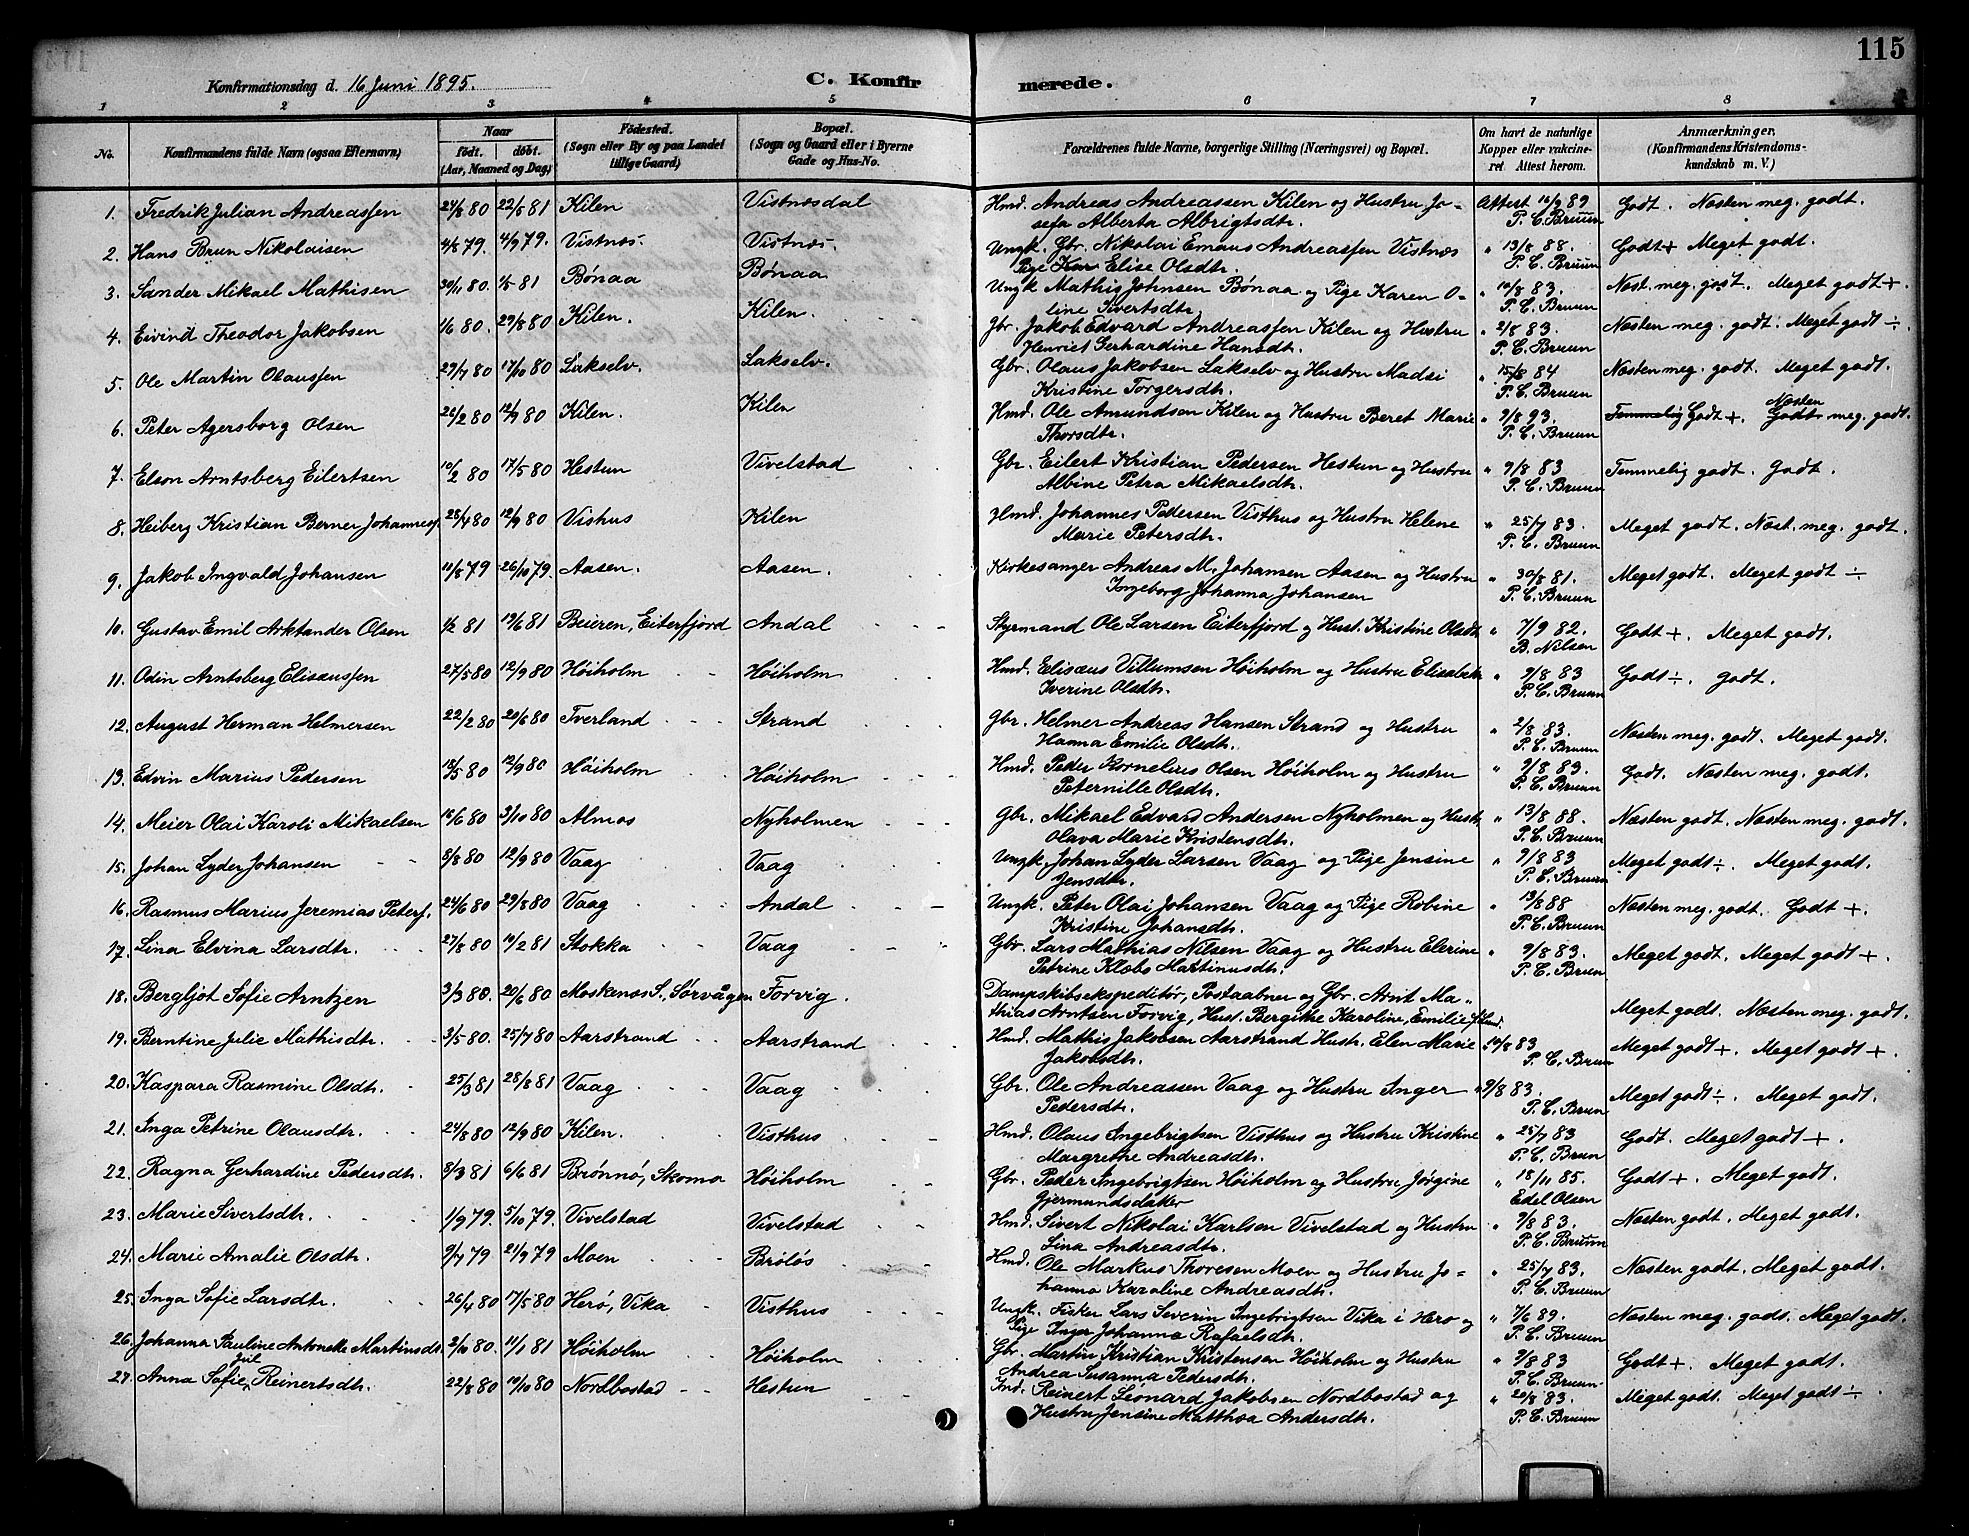 115
Konfirmationsdag d. 16 Juni 1895. C. Konfirmerede.
1 2 3 4 5 6 7 8
No. Konfirmandens fulde Navn (ogsaa Efternavn) Naar født. døbt. (Aar, Maaned og Dag) Fødested. (Sogn eller By og paa Landet tillige Gaard) Bopæl. (Sogn og Gaard eller i Byerne Gade og Hus-No. Forældrenes fulde Navne, borgerlige Stilling (Næringsvei) og Bopæl. Om havt de naturlige Kopper eller vakcineret. Attest herom. Anmærkninger. (Konfirmandens Kristendomskundskab m. V.)
1. Fredrik Julian Andreassen 24/8 80 22/5 81 Kilen Vistnesdal Hmd. Andreas Andreassen Kilen og Hustru Jo- Attest 16/9 89 Godt. Næsten meg. godt.
sefa Alberta Albrigtsdtr. P. C. Bruun
2. Hans Brun Nikolaisen 4/8 79. 4/9 79. Vistnæs. Vistnæs. Ungk. Gbr. Nikolai Emaus Andreassen Vistnæs " 13/8 88. Godt+ Meget godt.
Pige Elise Olsdtr. P. C. Bruun
3. Sander Mikael Mathisen 30/11 80. 1/5 81 Bønaa Bønaa Ungk Mathis Johnsen Bønaa og Pige Karen O- " 10/8 83. Næst. meg. godt. Meget godt+.
line Sivertsdtr. P. C. Bruun
4. Eivind Theodor Jakobsen 1/6 80. 29/8 80 Kilen. Kilen. Gbr. Jakob Edvard Andreassen Kilen og Hustru " 2/8 83. Næsten meg. godt. Meget godt ÷.
Henriet Gerhardine Hansdt. P. C. Bruun
5. Ole Martin Olaussen 29/7 80 17/10 80 Lakselv. Lakselv. Gbr. Olaus Jakobsen Lakselv og Hustru Madsi " 15/8 84 Næsten meg. godt. Meget godt.
Kristine Torgersdtr. P. C. Bruun
6. Peter Agersborg Olsen 26/2 80 12/9 80 Kilen. Kilen Hmd. Ole Amundsen Kilen og Hustru Beret Marie " 9/8 93. Temmelig Godt +. Næsten Godt meg. godt.
Thorsdtr. P. C. Bruun
7. Elson Arntsberg Eilertsen 10/2 80 17/5 80 Hestun Vivelstad Gbr. Eilert Kristian Pedersen Hestun og Hustru " 9/8 83 Temmelig godt. Godt.
Albine Petra Mikaelsdtr. P. C. Bruun
8. Heiberg Kristian Berner Johanness. 25/4 80 12/9 80 Vishus Kilen Hmd. Johannes Pedersen Visthus og Hustru Helene " 25/7 83. Meget godt. Næst. meg. godt.
Marie Petersdtr. P. C. Bruun
9. Jakob Ingvald Johansen 11/8 79 26/10 79. Aasen. Aasen. Kirkesanger Andreas M. Johansen Aasen og Hustru " 30/8 81. Meget godt. Meget godt ÷
Ingeborg Johanna Johansen P. C. Bruun
10. Gustav Emil Arktander Olsen 1/2 81 19/6 81 Beieren, Eiterfjord Andal Styrmand Ole Larsen Eiterfjord og Hust. Kristine Olsdt. " 7/9 82. Godt +. Meget godt.
B. Nilsen
11. Odin Arntsberg Elisæussen 27/5 80 12/9 80 Høiholm Høiholm Hmd. Elisæus Villumsen Høiholm og Hustru Elisabeth " 9/8 83 Godt ÷. Godt.
Iverine Olsdtr. P. C. Bruun
12. August Herman Helmersen 22/2 80 20/6 80 Tverland Strand Gbr. Helmer Andreas Hansen Strand og Hustru " 2/8 83. Næsten meg. godt. Meget godt.
Hanna Emilie Olsdtr. P. C. Bruun
13. Edvin Marius Pedersen 18/5 80 12/9 80 Høiholm Høiholm Hmd. Peder Kornelius Olsen Høiholm og Hustru " 9/8 83. Godt. Næsten meg. godt.
Peternille Olsdtr. P. C. Bruun
14. Meier Olai Karoli Mikaelsen 16/6 80 3/10 80 Almos Nyholmen Gbr. Mikael Edvard Andersen Nyholmen og Hustr. " 13/8 88. Næsten godt. Næsten meg. godt.
Olava Marie Kristensdtr. P. C. Bruun
15. Johan Lyder Johansen 8/8 80 12/9 80 Vaag Vaag Ungk. Johan Lyder Larsen Vaag og Pige Jensine " 9/8 83 Meget godt ÷. Meget godt.
Jensdtr. P. C. Bruun
16. Rasmus Marius Jeremias Peters. 24/6 80 29/8 80 Vaag Andal Ungk. Peter Olai Johansen Vaag og Pige Robine " 13/8 88 Næsten meg. godt. Godt +.
Kristine Johansdtr. P. C. Bruun
17. Lina Elvina Larsdtr. 27/8 80 11/2 81 Stokka Vaag Gbr. Lars Mathias Nilsen Vaag og Hustru Elerine " 9/8 83. Meget godt. Meget godt +.
Petrine Klæbo Martinusdtr. P. C. Bruun
18. Bergljot Sofie Arntzen 3/3 80. 20/6 80 Moskenæs S., Sørvågen Forvig. Dampskibsekspeditør, Postaabner og Gbr. Arnt Ma-
thias Arntsen Forvig, Hust. Bergitte Karoline, Emilie Meget godt. Næsten meg. godt.
19. Berntine Julie Mathisdtr. 3/5 80. 25/7 80 Aarstrand Aarstrand Hmd. Mathis Jakobsen Aarstrand Hustr. Elen Marie " 10/8 83 Meget godt +. Meget godt +.
Jakobsdtr. P. C. Brun
20. Kaspara Rasmine Olsdtr. 25/3 81 28/8 81 Vaag Vaag Gbr. Ole Andreassen Vaag og Hustru Inger " 9/8 83. Meget godt ÷. Meget godt.
Pedersdtr. P. C. Brun
21. Inga Petrine Olausdtr. 24/8 80 12/9 80 Kilen. Visthus Hmd. Olaus Ingebrigtsen Visthus og Hustru Kristine " 25/7 83 Godt. Meget godt +.
Margrethe Andreasdtr. P. C. Brun
22. Ragna Gerhardine Pedersdtr. 8/3 81 6/6 81 Brønnø, Skomo Høiholm Gbr. Peder Ingebrigtsen Høiholm og Hustru Jørgine " 18/11 85. Godt +. Meget godt.
Gjermundsdatter Edel Olsen
23. Marie Sivertsdtr. 1/9 79. 5/10 79. Vivelstad Vivelstad Hmd. Sivert Nikolai Karlsen Vivelstad og Hustru " 9/8 83. Næsten godt. Meget godt.
Lina Andreasdtr. P. C. Bruun
24. Marie Amalie Olsdtr. 9/7 79 21/9 79 Moen Broløs Hmd. Ole Markus Thoresen Moen og Hustru Jo- " 25/7 83. Næsten godt. Meget godt.
hanna Karoline Andreasdtr. P. C. Bruun
25. Inga Sofie Larsdtr. 26/4 80 17/5 80 Herø, Vika Visthus Ungk. Fisker Lars Severin Ingebrigtsen Vika i Herø og " 7/6 89. Næsten meg. godt. Meget godt.
Pige Inger Johanna Rafaelsdtr. P. C. Bruun
26. Johanna Pauline Antonette Martinsdt. 2/10 80. 11/1 81 Høiholm Høiholm Gbr. Martin Kristian Kristensen Høiholm og Hustru " 9/8 83 Godt +. Meget godt.
Andrea Susanna Pedersdtr. P. C. Bruun.
27. Anna Sofie Jul. Reinertsdtr. 22/8 80 10/10 80 Nordbostad Hestun Ind. Reinert Leonard Jakobsen Nordbostad og " 20/8 83. Meget godt. Meget godt ÷.
Hustru Jensine Matthea Andersdtr. P. C. Bruun